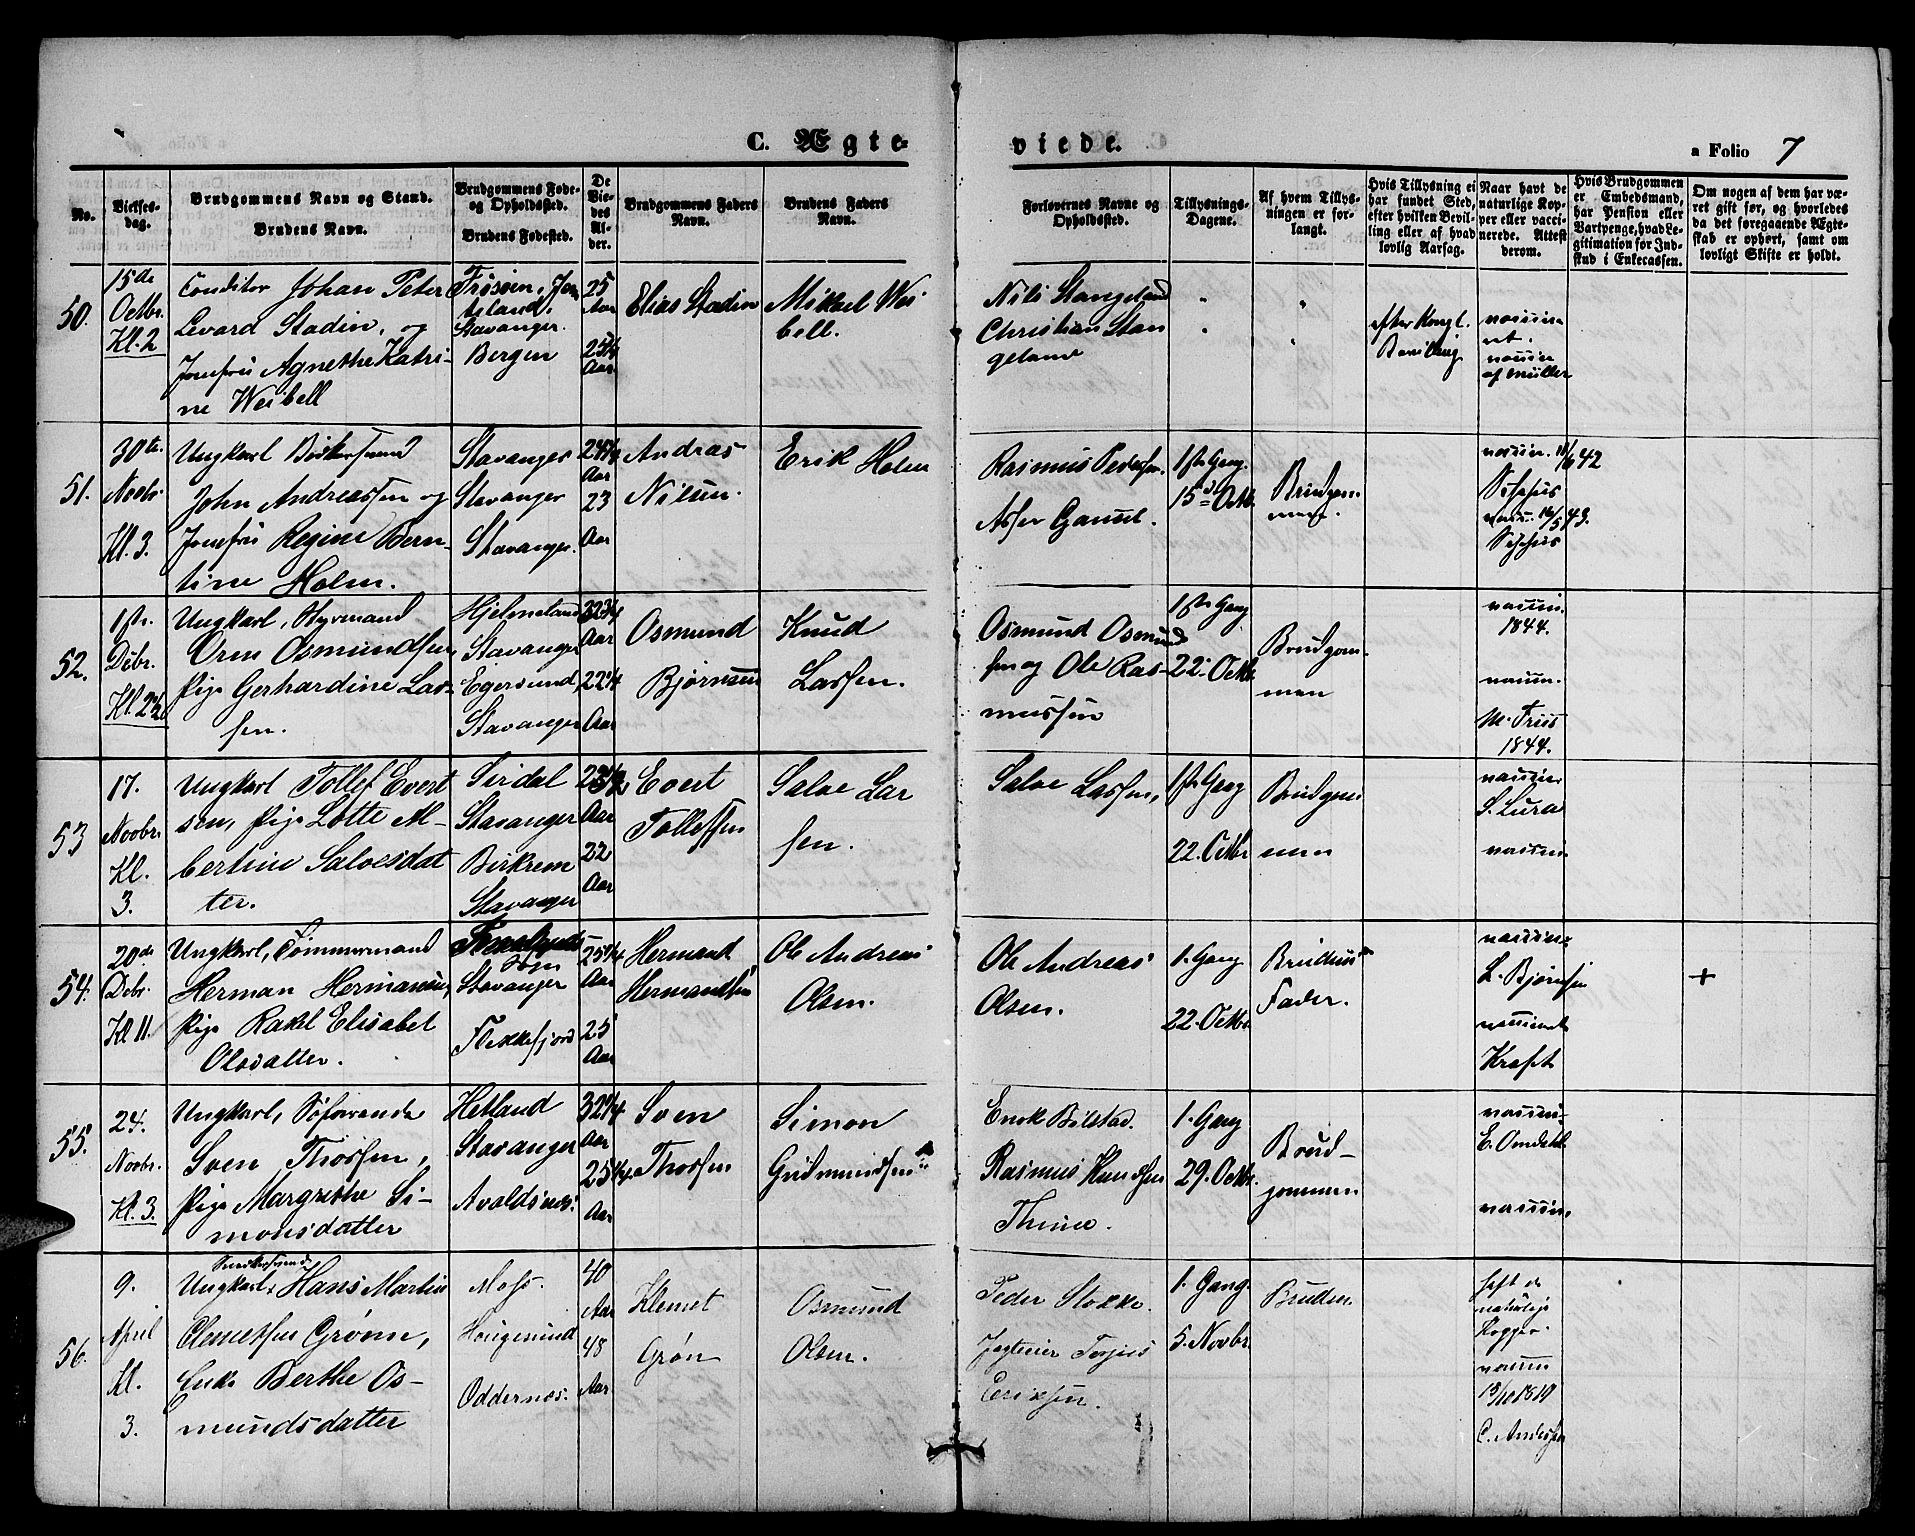 C. Ægte-
viede.
a Folio 7
No.
Vielses-
dag.
Brudgommens Navn og Stand.
Brudens Navn.
Brudgommens Føde-
og Opholdssted.
Brudens Fødested.
De
Vie-
des
Al-
der.
Brudgommens Faders
Navn.
Brudens Faders
Navn.
Forlovernes Navne og
Opholdssted.
Tillysnings-
Dagene.
Af hvem Tillys-
ningen er for-
langt.
Hvis Tillysning ei
har fundet Sted,
efter hvilken Bevil-
ling eller af hvad
lovlig Aarsag.
Naar havt de
naturlige Kop-
per eller vacci-
nerede. Attest
derom.
Hvis Brudgommen
er Embedsmand,
har Pension eller
Vartpenge, hvad Le-
gitimation for Ind-
skud i Enkecassen.
Om nogen af dem har væ-
ret gift før, og hvorledes
da det foregaaende Ægte-
skab er ophørt, samt om
lovligt Skifte er holdt.
50.
15de
Octbr.
Kl. 2
Conditor Johan Peter
Levard Stadin, og
Jomfru Agnethe Katri-
ne Weibell
Frösöen, Jem
teland.
Stavanger.
Bergen
25
Aar
25¼
Aar
Elias Stadin
Mikael Wei
bell.
Nils Stangeland
Christian Stan
geland
efter Kongl.
Bevilling
vaccine
ret.
vaccin
af Müller
51.
30te
Novbr.
Kl. 3.
Ungkarl Bødkersvend
John Andreassen og
Jomfru Regine Bern-
tine Holm.
Stavanger
Stavanger
Stavanger.
24¼
Aar
23
Aar
Andras
Nilsen.
Erik Holm
Rasmus Pedersen.
Asser Gausel.
1ste Gang.
15de Octb.
Brudgom
men.
vaccin. 11/6 42
Schehus
vacci. 16/5 43.
Schehus
52.
1ste
Debr.
Kl. 2½
Ungkarl, Styrmand
Orm Osmundsen,
Pige Gerhardine Las-
sen.
Hjelmeland
Stavanger
Egersund,
Stavanger
23¼
Aar
22¼
Aar
Osmund
Bjørnsen
Knud
Lassen.
Osmund Osmund
sen og Ole Ras-
mussen
1ste Gang
22. Octb.
Brudgom-
men
vaccin.
1844.
vaccin.
M. Friis
1844.
53
17.
Novbr.
Kl.
3.
Ungkarl Tollef Evert
sen, Pige Lotte Al-
bertine Salvesdat
ter.
Sirdal
Stavanger
Birkrem
Stavanger
Aar
22
Aar
Evert
Tollefsen
Salve Lar
sen.
Salve Larsen,
1ste Gang
22. Octbr.
Brudgom
men
vaccin
S. Lura
vaccin.
54.
20de
Debr.
Kl 11.
Ungkarl, Tømmermand
Herman Hermansen,
Pige Rakel Elisabet
Olsdatter.
Sogn
Stavanger
Flekkefjord
25¼
Aar
25
Aar
Hermand
Hermandsen
Ole Andreas
Olsen.
Ole Andreas
Olsen.
1. Gang
22. Octbr.
Brudens
Fader.
vaccin.
L. Bjørnsen
vaccineret
Kraft
+
55.
24.
Novbr.
Kl. 3.
Ungkarl, Søfarende
Sven Thorsen,
Pige Margrethe Si-
monsdatter
Hetland
Stavanger
Avaldsnes.
32¼
Aar
25¼
Aar
Sven
Thorsen
Simon
Gudmundsen
Enok Bilstad.
Rasmus Knudsen
Thime.
1. Gang
29. Octbr.
Brud-
gommen
vaccin-
E. Omdahl
vaccin.
56.
9.
April
Kl.
3.
Snedkersvend
Ungkarl, Hans Martin
Clemetsen Grønn,
Enke Berthe Os-
mundsdatter
Moss.
Haugesund
Oddernes.
40
Aar
48
Aar
Klemet
Grøn
Osmund
Olsen.
Peder Stokke.
Jegteier Torgies
Eriksen.
1. Gang.
5. Novbr.
Bruden.
haft de
naturlige
Kopper.
vaccin
13/10 1819
C. Andersen